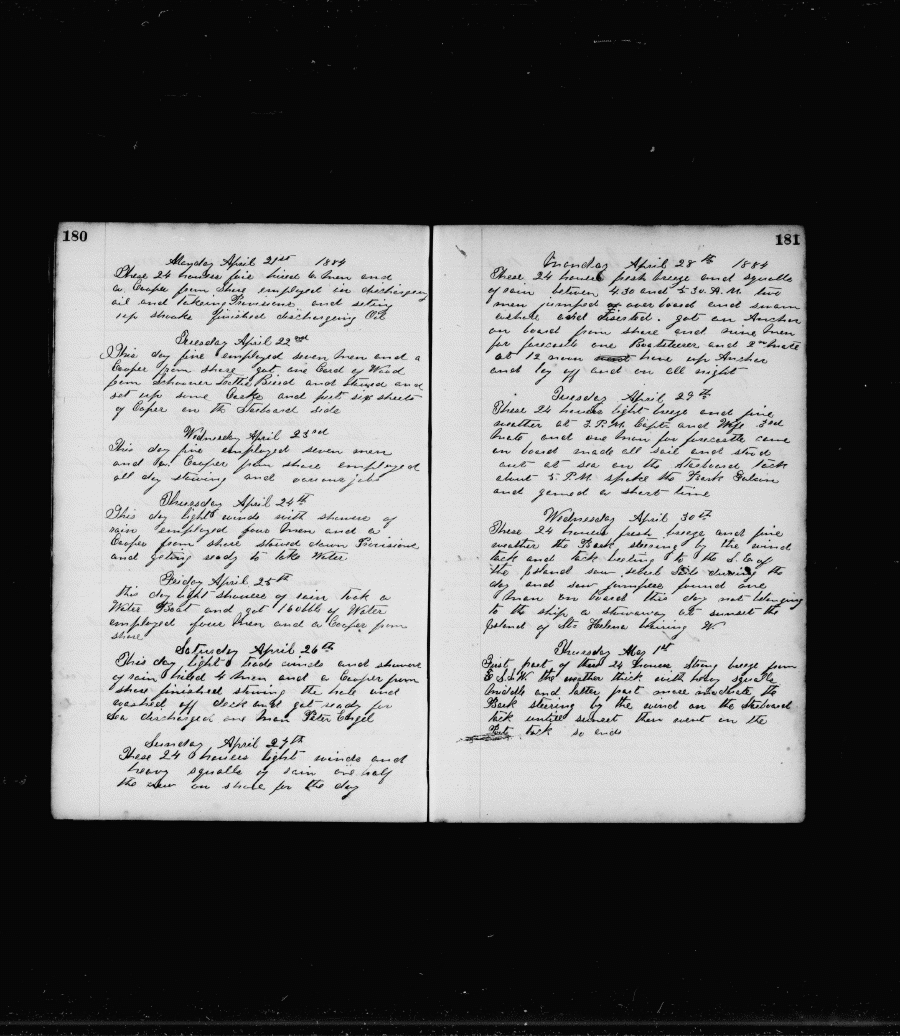 180
Monday April 21st 1884
These 24 houres fine hired 6 Men and
a Cooper from Shore employed in dischargeing
oil and takeing Provisions and seting
up shooks finished dischargeing Oil
Tuesday April 22nd
This day fine employed seven Men and a
Cooper from shore got one Cord of Wood
from Schooner Lottie Beard and Stowed and
set up some Casks and put six sheets
of Coper on the Starboard side
Wednesday April 23rd
This day fine employed seven men
and a Cooper from shore employed
all day stowing and various jobs
Thursday April 24th
This day light winds with showers of
rain employed four Men and a
Cooper from shore stowed down Provisions
and geting ready to take Water
Friday April 25th
this day light showers of rain took a
Water Boat and got 160 bbls of Water
employed four Men and a Cooper from
shore
Saturday April 26th
This day light trade winds and showers
of rain hired 4 Men and a Cooper from
shore finished stowing the hole and
washed off deck and got ready for
Sea discharged one Man Peter Engel
Sunday April 27th
These 24 houers light winds and
heavy squalls of rain one half
the crew on shore for the day
181
Monday April 28th 1884
These 24 houres fresh breeze and squalls
of rain betwen 4.30 and 5.30 A.M. two
men jumped over board and swam
ashore and diserted. got an Anchor
on board from shore and nine Men
for forecastle one Boatsteerer and 2nd Mate
at 12 noon hove up Anchor
and lay off and on all night
Tuesday April 29th
These 24 houres light breeze and fine
weather at 3. P.M. Capt. and Wife 3rd
Mate and one Man for forecastle came
on board made all sail and stood
out at sea on the Starboard tack
about 5 P.M. spoke the Bark
and gamed a short time
Wednesday April 30th
These 24 houres fresh breeze and fine
weather the Bark steering by the wind
tack and tack beating to the S.E. of
the Island saw during the
day and saw jumpers found one
Man on board this day not belonging
to the ship a stowaway at sunset the
Island of St. Helena bearing W.
Thursday May 1st
First part of these 24 houres Strong breeze from
E.S.E. the weather thick with heavy squalls
Middle and latter part more moderate the
Bark steering by the wind on the Starboard
tack untill sunset then went on the
Port tack so ends